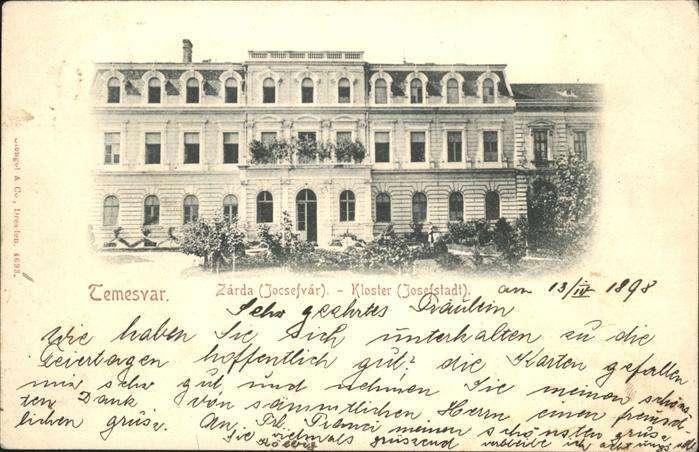 Stengel & Co., Dresden. 4693.
Temesvar.
Zárda (Jocsefvár). - Kloster (Josefstadt).
am 13/IV 1898
Sehr geehrtes Fräulein
Wie haben Sie sich unterhalten zu die
Feiertagen hoffentlich gut; die Karten gefallen
mir sehr gut und nehmen Sie meinen schöns
ten Dank. Von sämmtlichen Herrn einen freund
lichen gruss. An Frl. Franci meinen schönsten gruss.
Sie vielmals grüssend verbleibe ich